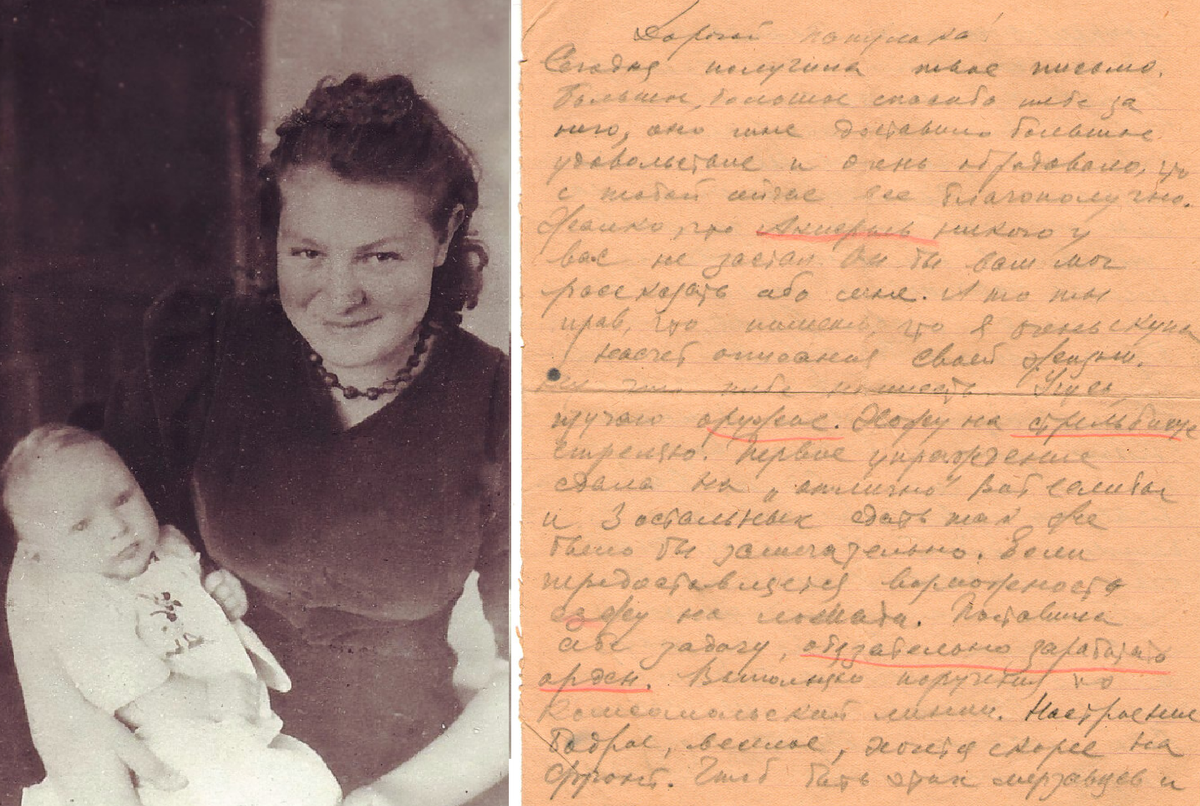 Дорогой папулька!
Сегодня получила твое письмо.
Большое, большое спасибо тебе за
него, оно мне доставило большое
удовольствие и очень обрадовало, что
с тобой сейчас все благополучно.
Жалко, что никого у
вас не застал. Он бы вам мог
рассказать обо мне. А то ты
прав, что пишешь, что я очень скупа
насчет описания своей жизни.
Ну что тебе написать. Учусь,
изучаю оружие. Хожу на стрельбище
стреляю. Первое упражнение
сдала на „отлично" Вот если бы
и 3 остальных сдать так же
было бы замечательно. Если
предоставляется возможность
езжу на лошади. Поставила
себе задачу, обязательно заработать
орден. Выполняю поручения по
комсомольской линии. Настроение
бодрое, веселое, хочется скорее на
фронт. Чтоб бить этих мерзавцев и